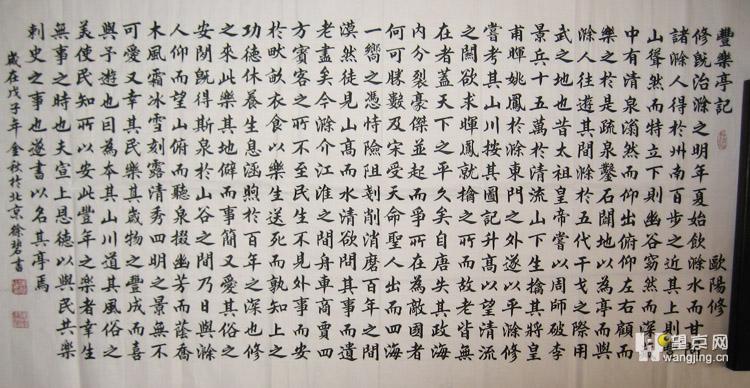 豐樂亭記 歐陽修
修既治滁之明年夏始飲滁水而甘
諸滁人得於州南百步之近其上則
山聳然而特立下則幽谷窈然而深
中有清泉滃然而仰出俯仰左右顧而
樂之於是疏泉鑿石闢地以為亭而與
滁人往遊其間滁於五代干戈之際用
武之地也昔太祖皇帝嘗以周師破李
景兵十五萬於清流山下生擒其將皇
甫暉姚鳳於滁東門之外遂以平滁修
嘗考其山川按其圖記升高以望清流
之關欲求暉鳳就擒之所而故老皆無
在者蓋天下之平久矣自唐失其政海
內分裂豪傑並起而爭所在為敵國者
何可勝數及宋受天命聖人出而四海
一嚮之憑恃險阻剗削消磨百年之間
漠然徒見山高而水清欲問其事而遺
老盡矣今滁介江淮之間舟車商賈四
方賓客之所不至民生不見外事而安
於畎畝衣食以樂生送死而孰知上之
功德休養生息涵煦於百年之深也修
之來此樂其地僻而事簡又愛其俗之
安閒既得斯泉於山谷之間乃日與滁
人仰而望山俯而聽泉掇幽芳而蔭喬
木風霜冰雪刻露清秀四明之景無不
可愛又幸其民樂其歲物之豐成而喜
與予遊也因為本其山川道其風俗之
美使民知所以安此豐年之樂者幸生
無事之時也夫宣上恩德以與民共樂
刺史之事也遂書以名其亭焉
歲在戊子年金秋於北京徐碧書
望京网
wangjing.cn